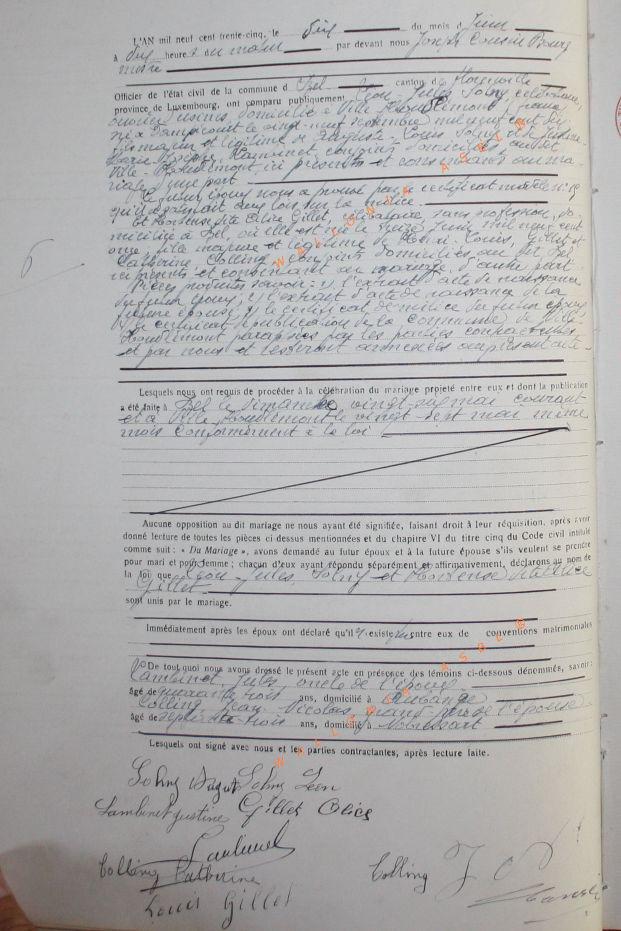 L'AN mil neuf cent trente-cinq, le dix du mois d Juin
à dix heure s du matin par devant nous Joseph Cousin Bourg
mestre
Officier de l'état civil de la commune d Ixel canton d Florenville
province de Luxembourg, ont comparu publiquement Léon Jules Solny célibataire,
ouvrier d'usines domicilié à Ville Houdlémont, France
né à Dampicourt le vingt-neuf novembre mil neuf cent
fils majeur et légitime de Auguste Louis Solny et de Justine
Marie Lambinet, conjoints domiciliés, audit
Ville-Houdlémont, ici présents et consentants au ma-
riage, d'une part
Le futur époux nous a prouvé par le certificat modèle n°
qu'il a satisfait aux lois sur la milice.
Et Hortense Alice Gillet, célibataire, sans profession, do-
miciliée à Ixel, où elle est née le seize Juin mil neuf cent
onze, fille majeure et légitime de Henri-Louis Gillet et
Catherine Colling, conjoints domiciliés au dit Ixel
ici présents et consentant au mariage, d'autre part.
Pièces produites savoir: 1) l'extrait d'acte de naissance
du futur époux, 2) l'extrait d'acte de naissance de la
future épouse, 3) le certificat de milice du futur époux
4) le certificat de publication de la commune de Ville
Houdlémont paraphés par les parties contractantes
et par nous et resteront annexées au présent acte.
Lesquels nous ont requis de procéder à la célébration du mariage projeté entre eux et dont la publication
a été faite à Ixel le dimanche vingt-six mai courant
et à Ville Houdlémont le vingt-sept mai même
mois conformément à la loi
Aucune opposition au dit mariage ne nous ayant été signifiée, faisant droit à leur réquisition, après avoir
donné lecture de toutes les pièces ci-dessus mentionnées et du chapitre VI du titre cinq du Code civil intitulé
comme suit : « Du Mariage », avons demandé au futur époux et à la future épouse s'ils veulent se prendre
pour mari et pour femme ; chacun d'eux ayant répondu séparément et affirmativement, déclarons au nom de
la loi que Léon Jules Solny et Hortense Alice
Gillet
sont unis par le mariage.
Immédiatement après les époux ont déclaré qu'il n'existe pas entre eux de conventions matrimoniales
De tout quoi nous avons dressé le présent acte en présence des témoins ci-dessous dénommés, savoir :
Lambinet, Jules, oncle de l'époux
âgé de quarante trois ans, domicilié à Aubange
Colling Jean Nicolas, grand père de l'épouse
âgé de septante-trois ans, domicilié à Nobressart
Lesquels ont signé avec nous et les parties contractantes, après lecture faite.
Solny August Solny Léon
Lambinet Justine Gillet Alice
Lambinet
Colling Catherine Colling J
Louis Gillet